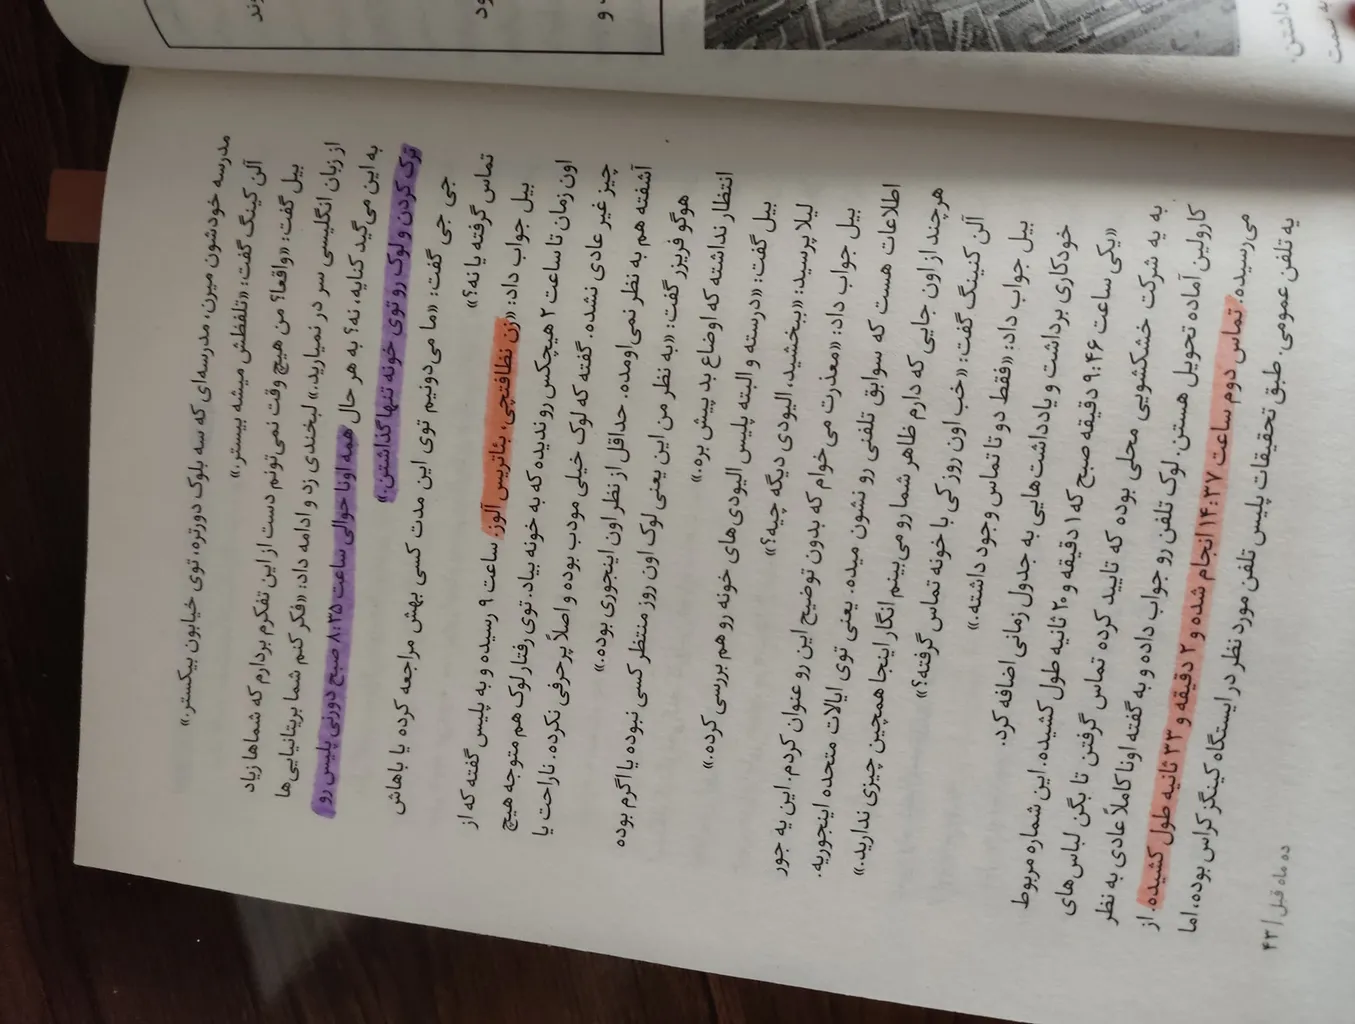 مدرسه خودشون میرن، مدرسه‌ای که سه بلوک دورتره، توی خیابون بیکستر.»
آلن کینگ گفت: «تلفظش میشه بیستر.»
بیل گفت: «واقعا؟ من هیچ وقت نمی‌تونم دست از این تفکرم بردارم که شماها زیاد
از زبان انگلیسی سر در نمیارید.» لبخندی زد و ادامه داد: «فکر کنم شما بریتانیایی‌ها
به این می‌گید کنایه، نه؟ به هر حال همه اونا حوالی ساعت ۸:۳۵ صبح دورتی پلیس رو
ترک کردن و لوک رو توی خونه تنها گذاشتن.»
جی جی گفت: «ما می‌دونیم توی این مدت کسی بهش مراجعه کرده یا باهاش
تماس گرفته یا نه؟»
بیل جواب داد: «زن نظافتچی، بئاتریس آلوز، ساعت ۹ رسیده و به پلیس گفته که از
اون زمان تا ساعت ۲ هیچکس رو ندیده که به خونه بیاد. توی رفتار لوک هم متوجه هیچ
چیز غیر عادی نشده. گفته که لوک خیلی مودب بوده و اصلاً پرحرفی نکرده. ناراحت یا
آشفته هم به نظر نمی‌اومده. حداقل از نظر اون اینجوری بوده.»
هوگو فریزر گفت: «به نظر من این یعنی لوک اون روز منتظر کسی نبوده یا اگرم بوده
انتظار نداشته که اوضاع بد پیش بره.»
بیل گفت: «درسته و البته پلیس الیودی‌های خونه رو هم بررسی کرده.»
لیلا پرسید: «ببخشید، الیودی دیگه چیه؟»
بیل جواب داد: «معذرت می‌خوام که بدون توضیح این رو عنوان کردم. این یه جور
اطلاعات هست که سوابق تلفنی رو نشون میده. یعنی توی ایالات متحده اینجوریه.
هرچند از اون جایی که دارم ظاهر شما رو می‌بینم انگار اینجا همچین چیزی ندارید.»
آلن کنینگ گفت: «خب اون روز کی با خونه تماس گرفته؟»
بیل جواب داد: «فقط دو تا تماس وجود داشته.»
خودکاری برداشت و یادداشت‌هایی به جدول زمانی اضافه کرد.
«یکی ساعت ۹:۴۶ دقیقه صبح که ۱ دقیقه و ۲۰ ثانیه طول کشیده. این شماره مربوط
به یه شرکت خشکشویی محلی بوده که تایید کرده تماس گرفتن تا بگن لباس‌های
کارولین آماده تحویل هستن. لوک تلفن رو جواب داده و به گفته اونا کاملاً عادی به نظر
می‌رسیده. تماس دوم ساعت ۱۴:۳۷ انجام شده و ۲ دقیقه و ۳۳ ثانیه طول کشیده. از
یه تلفن عمومی. طبق تحقیقات پلیس تلفن مورد نظر در ایستگاه کینگز کراس بوده، اما
ده ماه قبل | ۴۳